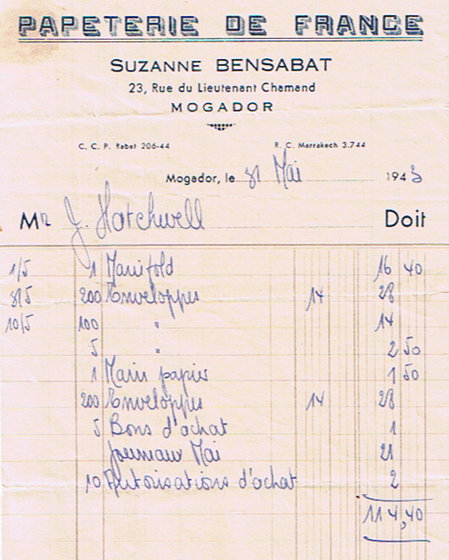 PAPETERIE DE FRANCE
SUZANNE BENSABAT
23, Rue du Lieutenant Chamand
MOGADOR
C. C. P. Rabat 206-44 R. C. Marrakech 3.744
Mogador, le 31 Mai 1943
Mr J. Hatchwell Doit
1/5 1 Manifold 16 40
8/5 200 Enveloppes 14 28
10/5 100 " 14
5 " 2.50
1 Main papier 1 50
200 Enveloppes 14 28
5 Bons d'achat 1
Journaux Mai 21
10 Autorisations d'achat 2
114,40